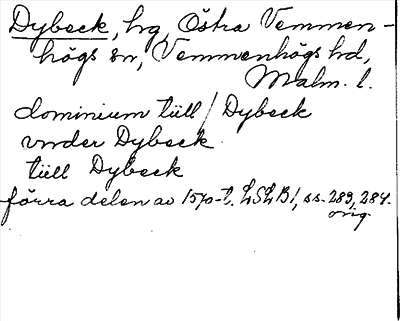 Dybeck, hrg, Östra Vemmen-
högs sn, Vemmenhögs hd,
Malm. l.
dominium tiill / Dybeck
vnder Dybeck
tiill Dybeck
förra delen av 1570-t. LSLB1, ss. 283, 284.
orig.